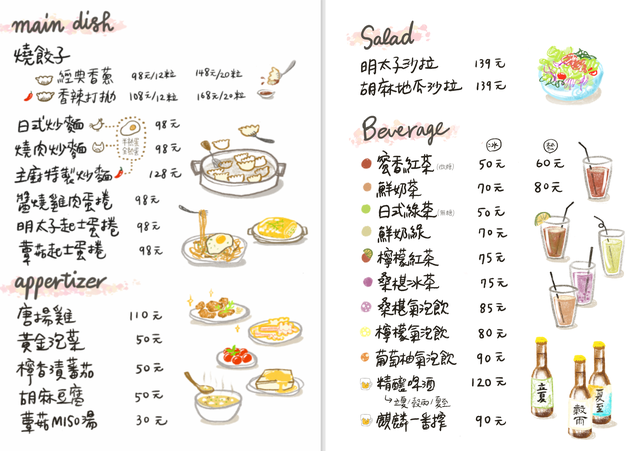 main dish
燒餃子
經典香蔥 98元/12粒 148元/20粒
香辣打拋 108元/12粒 168元/20粒
日式炒麵 98元
燒肉炒麵 98元
主廚特製炒麵 128元
醬燒雞肉蛋捲 98元
明太子起士蛋捲 98元
蘑菇起士蛋捲 98元
appertizer
唐揚雞 110元
黃金泡菜 50元
檸香漬蕃茄 50元
胡麻豆腐 50元
蘑菇MISO湯 30元
Salad
明太子沙拉 139元
胡麻地瓜沙拉 139元
Beverage
冰 熱
蜜香紅茶 50元 60元
鮮奶茶 70元 80元
日式綠茶(無糖) 50元
鮮奶綠 70元
檸檬紅茶 75元
桑椹冰茶 75元
桑椹氣泡飲 85元
檸檬氣泡飲 80元
葡萄柚氣泡飲 90元
精釀啤酒 120元
立夏/穀雨/夏至
麒麟一番搾 90元
立夏
穀雨
夏至